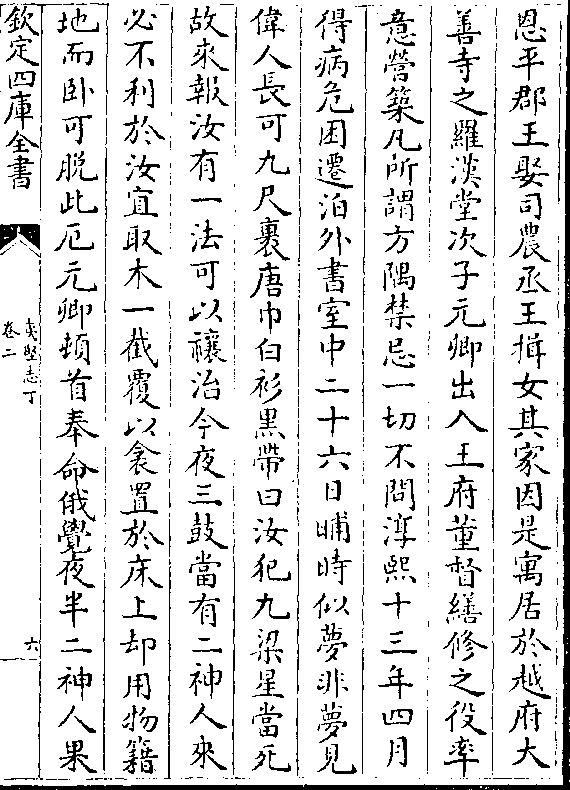 恩平郡王娶司農丞王揖女其家因是寓居於越府大
善寺之羅漢堂次子元卿出入王府董督繕修之役率
意營築凡所謂方隅禁忌一切不問淳熙十三年四月
得病危困遷泊外書室中二十六日晡時似夢非夢見
偉人長可九尺裹唐巾白衫黑帶曰汝犯九梁星當死
故來報汝有一法可以禳治今夜三鼓當有二神人來
必不利於汝宜取木一截覆以衾置於床上却用物籍
地而卧可脱此厄元卿頓首奉命俄覺夜半二神人果
欽定四庫全書
夷堅志丁
卷二
六